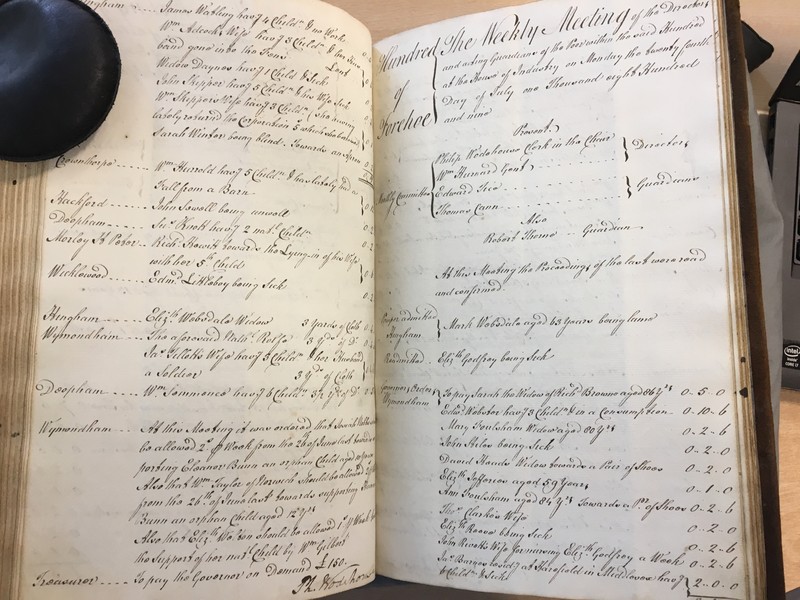 Hingham ---- James Watling havg 4 Childn & no Work
Wm Adcocks Wife havg 3 Childn & her
band gone into the Fens
Widow Daynes havg 1 Child & Sick
John Skipper havg 5 Childn & his Wife Sick
Wm Skippers Wife havg 3 Childn
lately returnd the Corporation
Sarah Winter being blind. Towards an
Crownthorpe -- Wm Hurrold havg 5 Childn & has lately had a
Fall from a Barn
Hackford ---- John Sewell being unwell
Deopham --- Knott havg 2 natl Childn
Morley St Peter -- Richd towards the Lying-in of his Wife
with her 5th Child
Wicklewood --- Edmd Littleboy being Sick
Hingham --- Elizth Wabsdale Widow 3 yards of Cloth
Wymondham -- The aforesaid Nathl 3 yds of Do
Jas Wife havg 3 Childn & her Husband
a Soldier 3 yds of Cloth
Deopham --- Wm Sommonce havg 6 Childn yds of Do
Wymondham - At this Meeting it was ordered, that Sarah
be allowed 2s. P Week from the of June last towards sup
porting Eleanor Bunn an orphan Child aged
Also that Wm Taylor of Norwich should be allowed
from the 26th of June last towards supporting
Bunn an orphan Child aged 12 yrs
Also that Elizth Watson should be allowed 1s P Week
the Support of her natl Child by Wm Gilbert
Treasurer --- To pay the Governor on Demand £150.
Hundred of Forehoe
The Weekly Meeting of the Directors
and acting Guardians of the Poor within the said Hundred
at the House of Industry on Monday the twenty fourth
Day of July one Thousand eight Hundred
and nine
Present
Weekly Committee
Philip Wodehouse Clerk in the Chair
Wm Hurnard Gent
Directors
Edward
Thomas Cann
Guardians
Also
Robert Thorne -- Guardian
At this Meeting the Proceedings of the last were read
and confirmed
Pauper admitted
Hingham
Mark Wabsdale aged 63 Years being lame
Readmitted. Elizth Godfrey being Sick
Governors Orders
Wymondham
To pay Sarah the Widow of Richd Browne aged 86 yrs 0-5-0
Edwd Webster havg 3 Childn & in a Consumption 0-10-6
Mary Foulsham Widow aged 80 yrs 0-2-6
John being Sick 0-2-0
David Widow towards a Pair of Shoes 0-2-0
Elizth Jefferies aged 59 Years 0-1-0
Ann Foulsham aged 84 yrs Towards a Pr of Shoes 0-2-6
Thos Clarke's Wife 0-2-0
Elizth being Sick 0-2-6
John Wife for nursing Elizth Godfrey a Week 0-2-6
Jas Barnes residg at Harefield in Middlesex havg
6 Childn & Sick 2-0-0
intel
inside
CORE i7